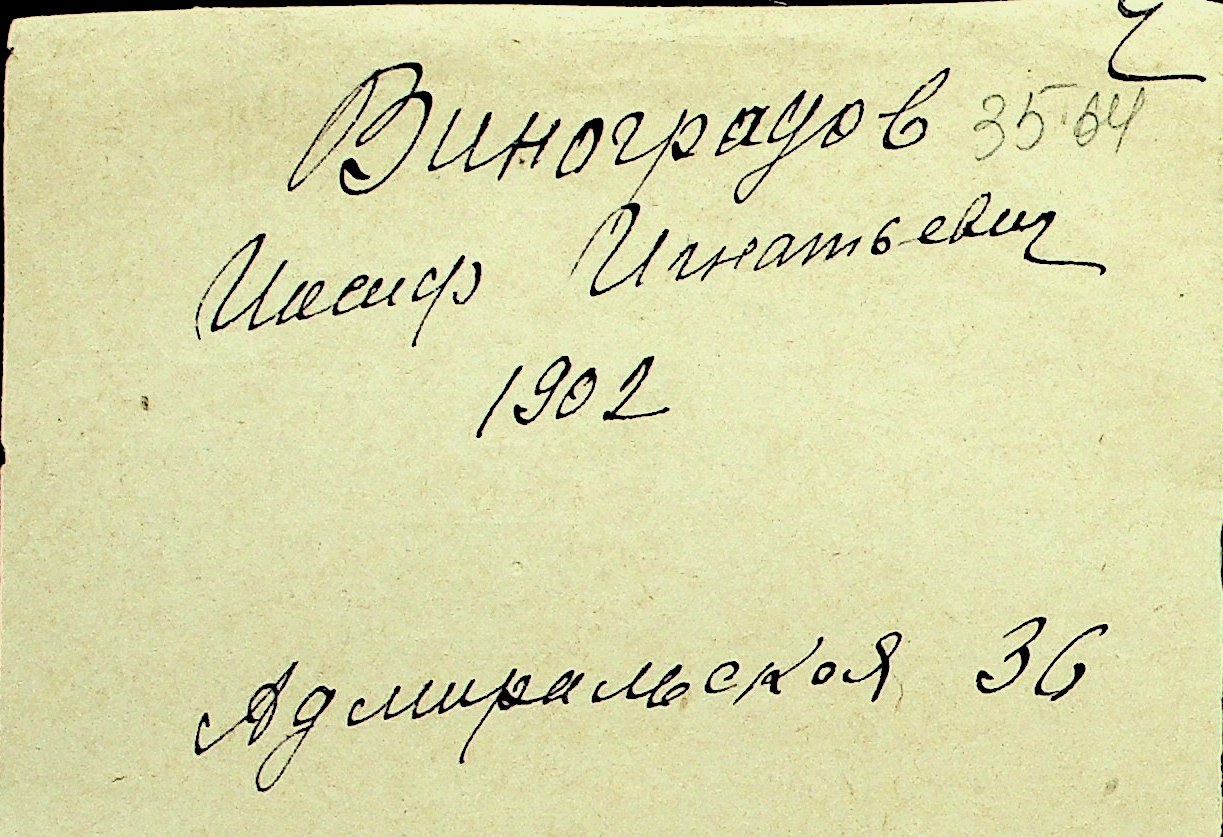 Виноградов 35-64
Иосиф Игнатьевич
1902
Адмиральская 36